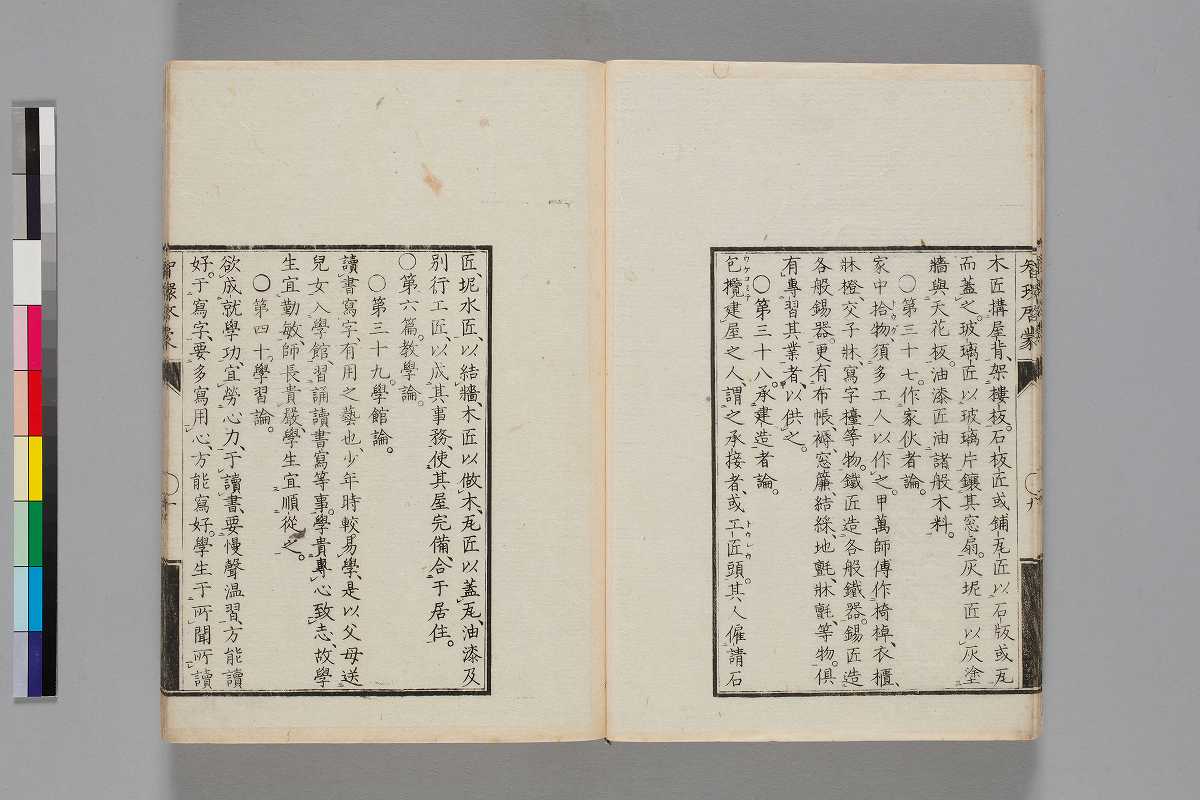 智環啓蒙
木匠搆屋背、架樓板。石板匠或鋪瓦匠以石版或瓦
而蓋之。玻璃匠以玻璃片鑲其窓扇。灰坭匠以灰塗
牆與天花板。油漆匠油諸般木料。
○第三十七。作家伙者論。
家中拾物、須多工人以作之。甲萬師傅作椅棹、衣櫃、
牀橙、交子牀、寫字檯等物。鐵匠造各般鐵器。錫匠造
各般錫器。更有布帳、褥、窓簾、結綵、地氈、牀氈、等物。俱
有專習其業者、以供之。
○第三十八。承建造者論。
包攬建屋之人謂之承接者、或工匠頭。其人僱請石
ウケコミテ
トウレウ
匠、坭水匠、以結牆、木匠以做木、瓦匠以蓋瓦、油漆及
別行工匠、以成其事務、使其屋完備、合于居住。
○第六篇。教學論。
○第三十九。學館論。
讀書寫字、有用之藝也、少年時較易學、是以父母送
兒女入學館習誦讀書寫等事。學貴專心致志、故學
生宜勤敏、師長貴嚴學生宜順從之。
○第四十。學習論。
欲成就學功、宜勞心力、于讀書、要慢聲温習、方能讀
好。于寫字、要多寫用心、方能寫好。學生于所聞所讀